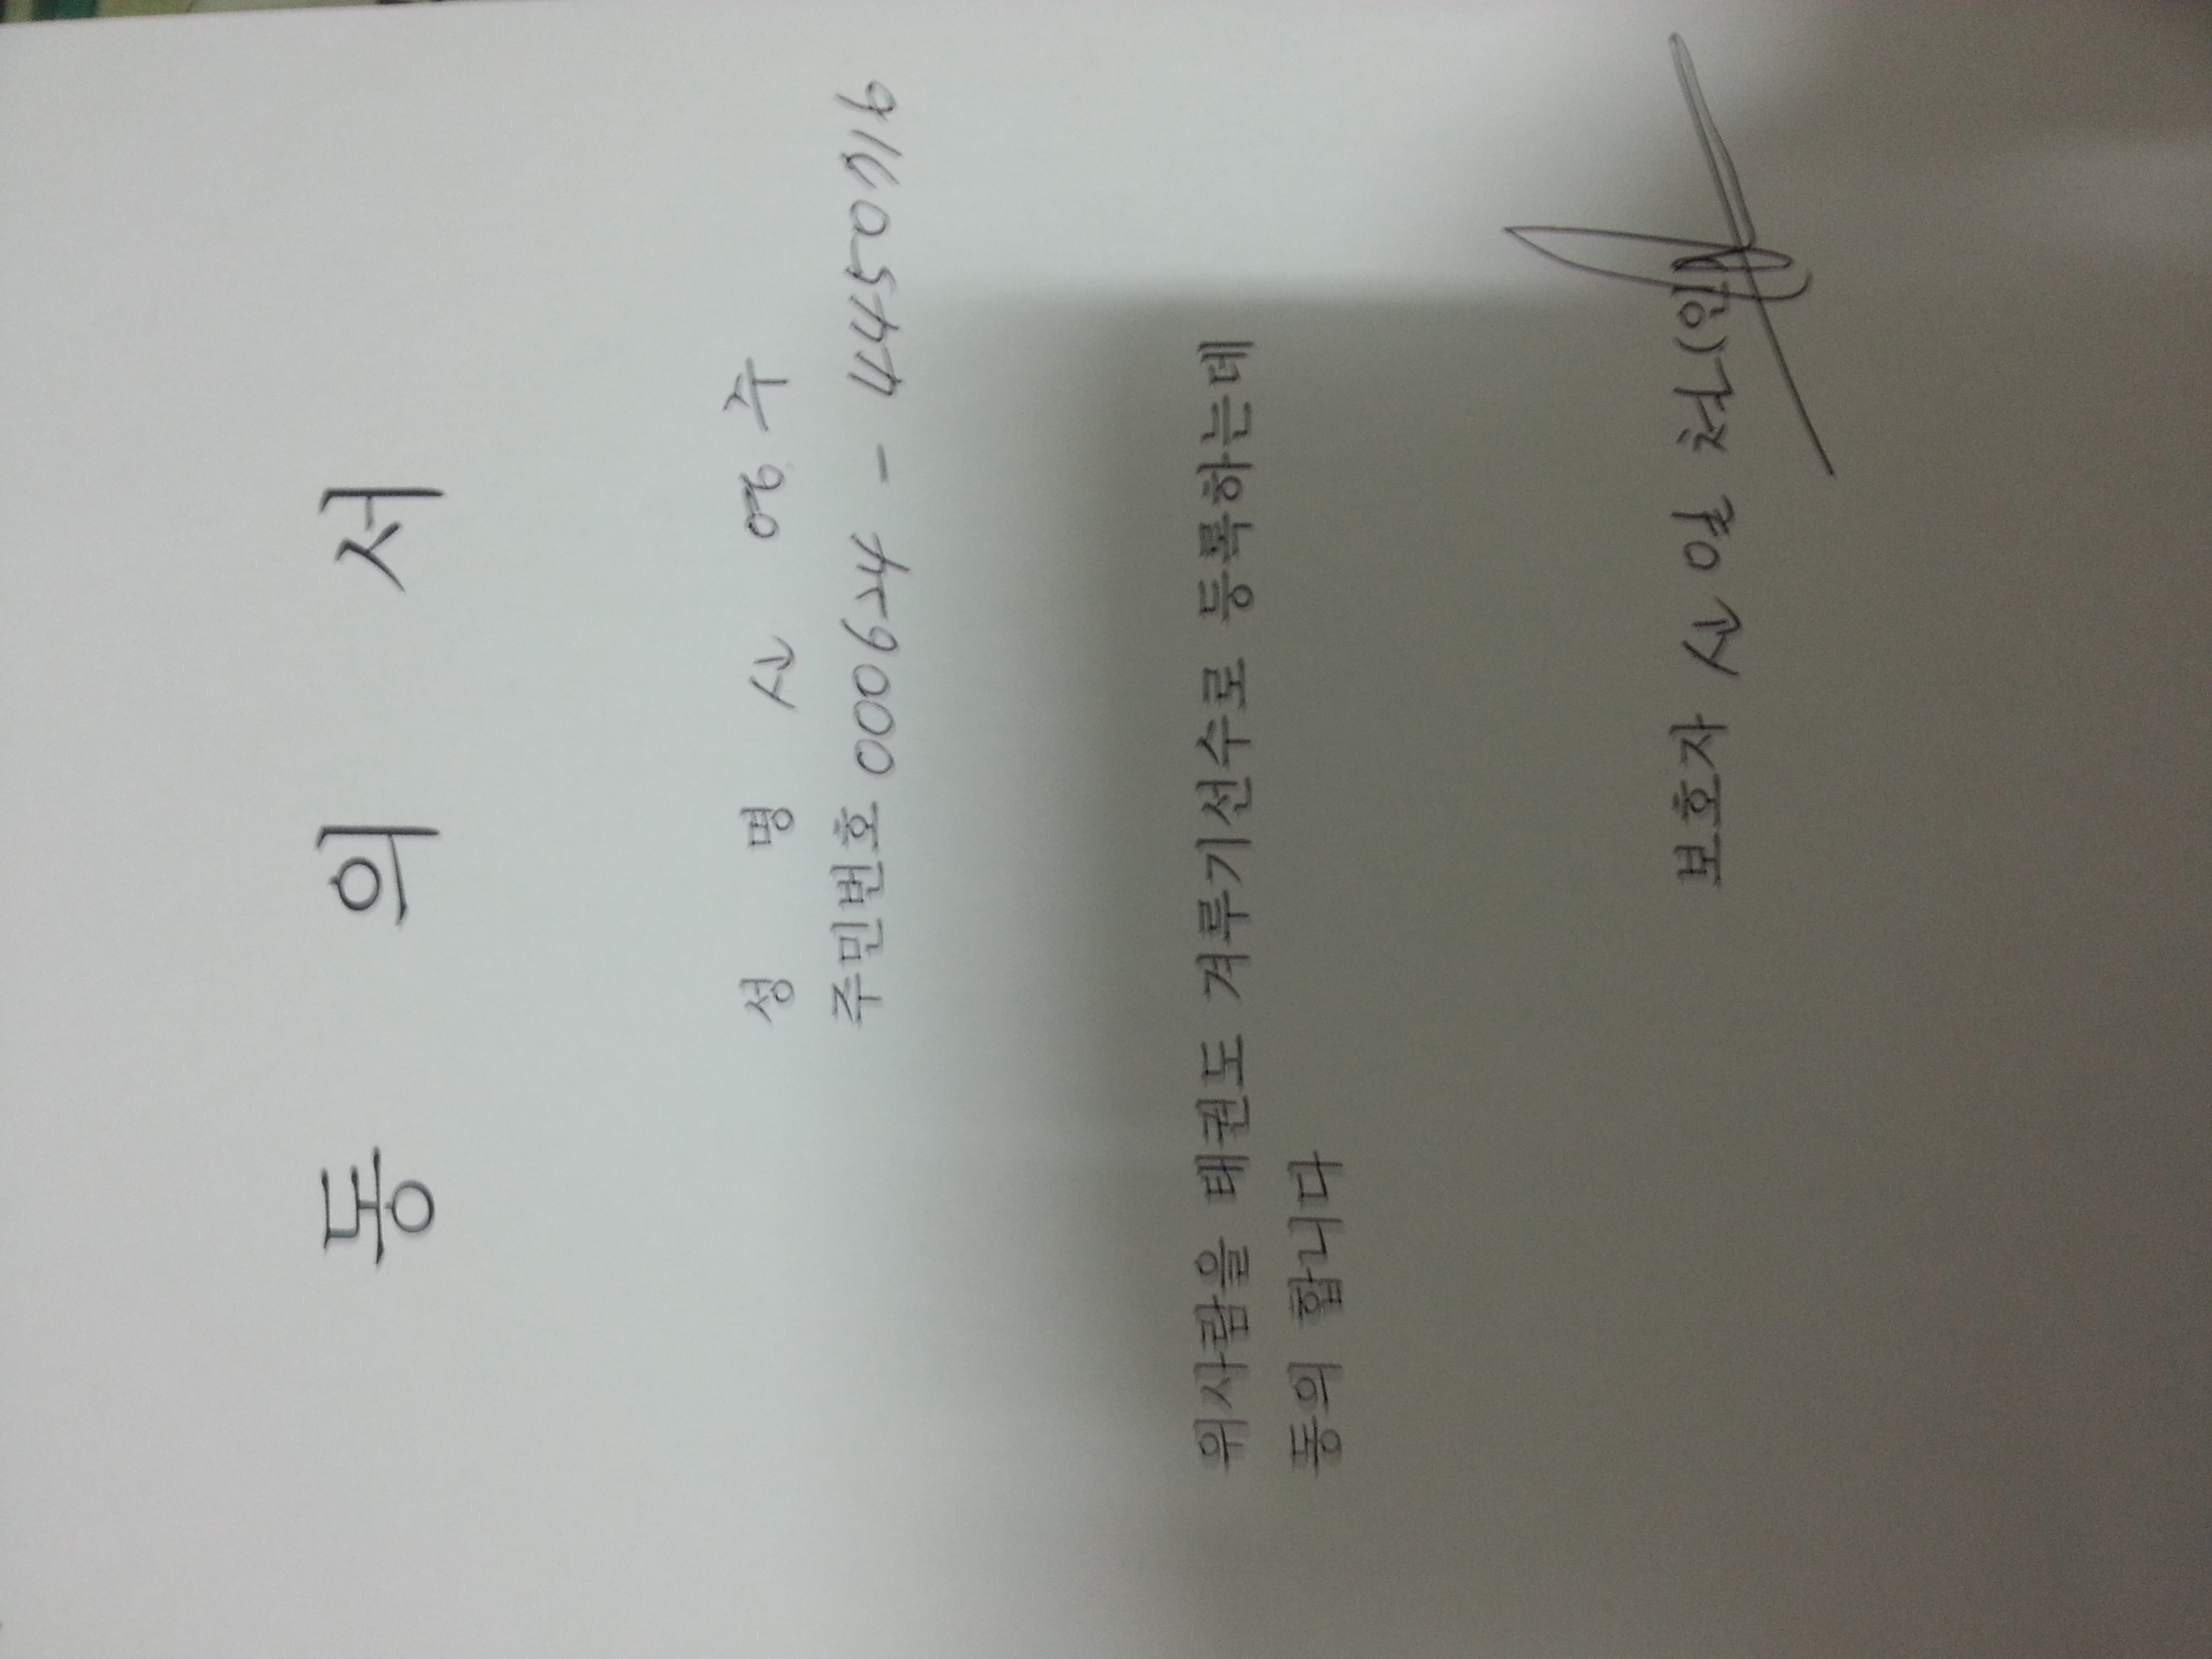 동 의 서
성 명 신 영 주
주민번호 000654 - 4450116
위사람을 태권도 겨루기선수로 등록하는데
동의 합니다
보호자 신 일 천 (인)